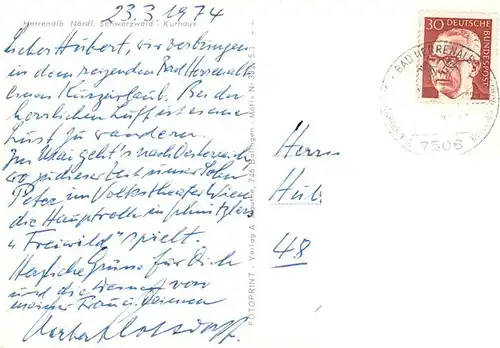 23.3.1974
Herrenalb Nördl. Schwarzwald · Kurhaus
Lieber Hubert, wir verbringen
in dem reizenden Bad Herrenalb
einen Kurzurlaub. Bei der
herrlichen Luft ist es eine
Lust zu wandern.
Im Mai geht's nach Oesterreich
wo zu dieser Zeit unser Sohn
Peter im Volkstheater Wien
die Hauptrolle in Schnitzlers
"Freiwild" spielt.
Herzliche Grüsse für Dich
und die Deinen von
meiner Frau
FOTOPRINT · Verlag A.
30
DEUTSCHE
BUNDESPOST
BAD HERRENALB
7506
Herrn
Hub
48